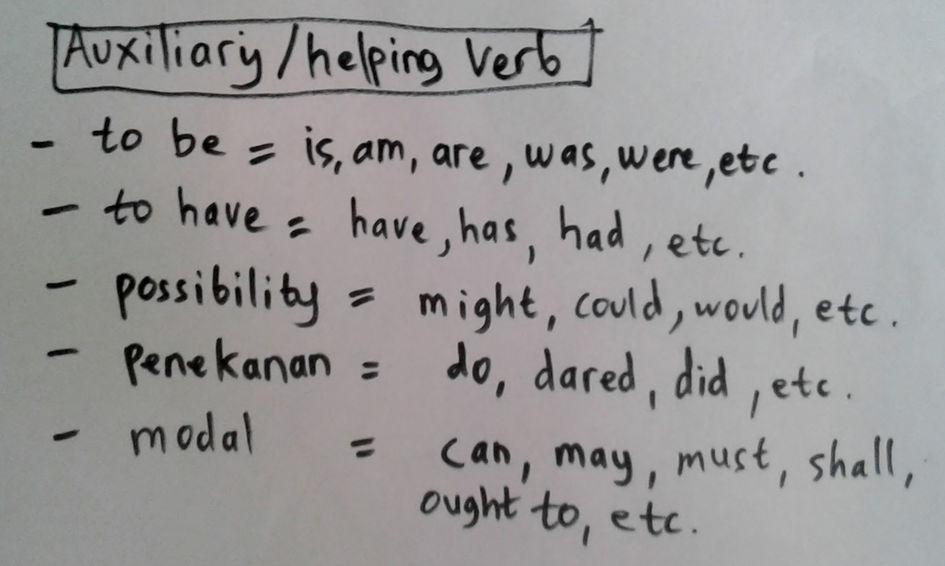 Auxiliary/helping Verb
- to be = is, am, are, was, were, etc.
- to have = have, has, had, etc.
- possibility = might, could, would, etc.
- Penekanan = do, dared, did, etc.
- modal = can, may, must, shall,
ought to, etc.